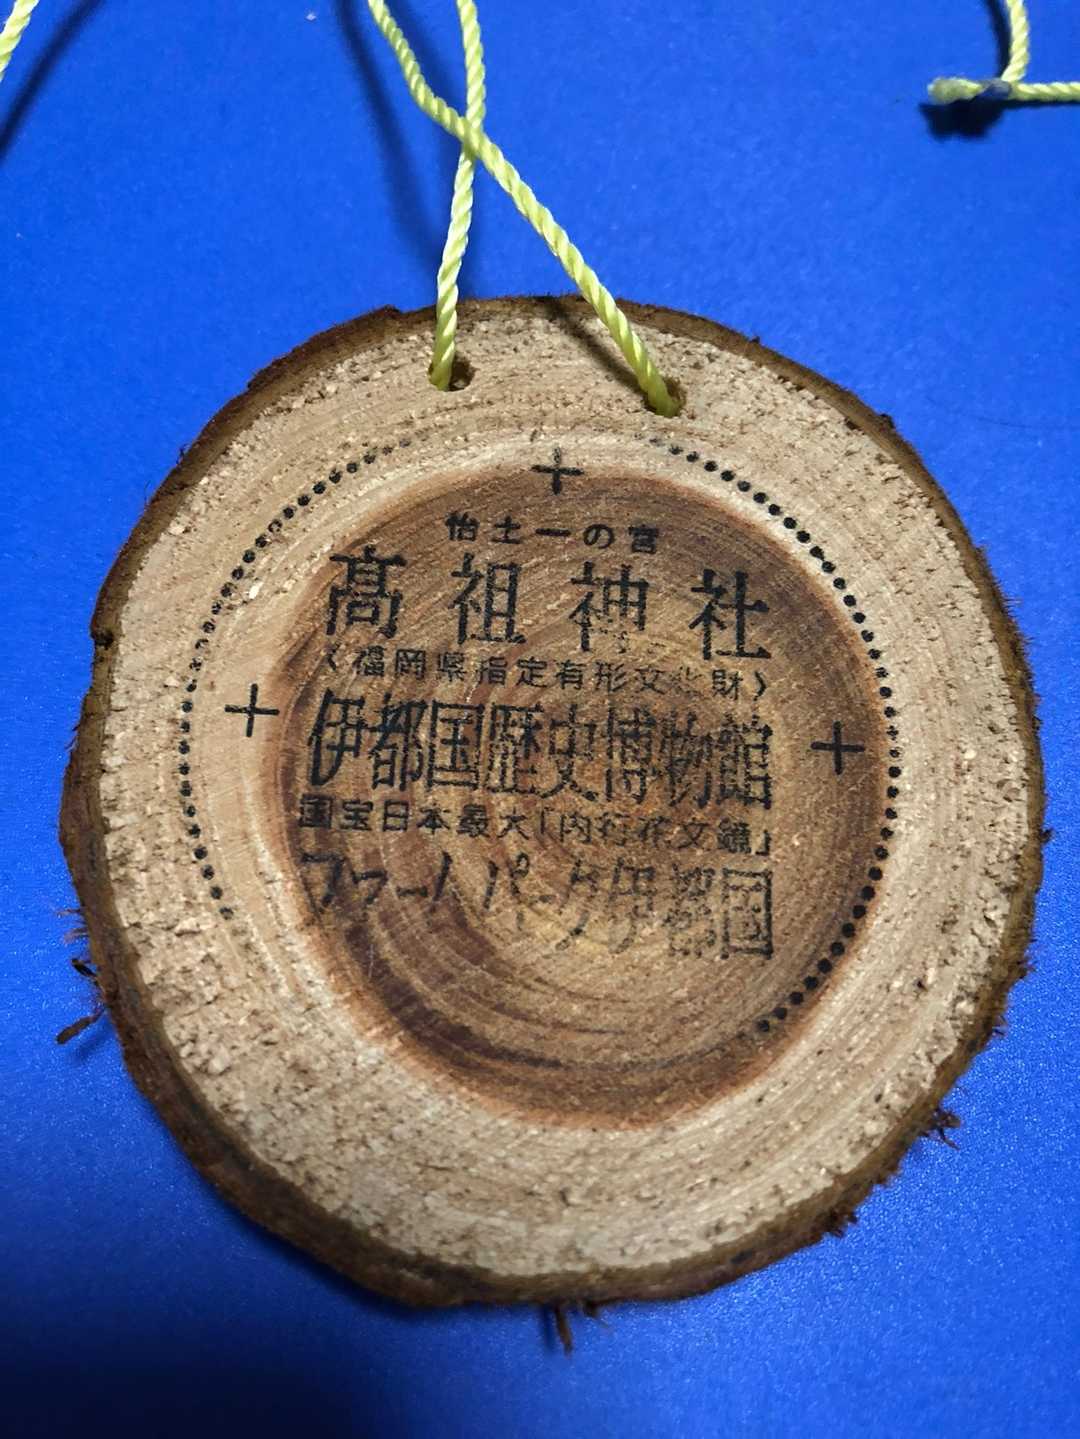 怡土一の宮
高祖神社
〈福岡県指定有形文化財〉
伊都国歴史博物館
国宝日本最大「内行花文鏡」
フラワーパーク伊都国